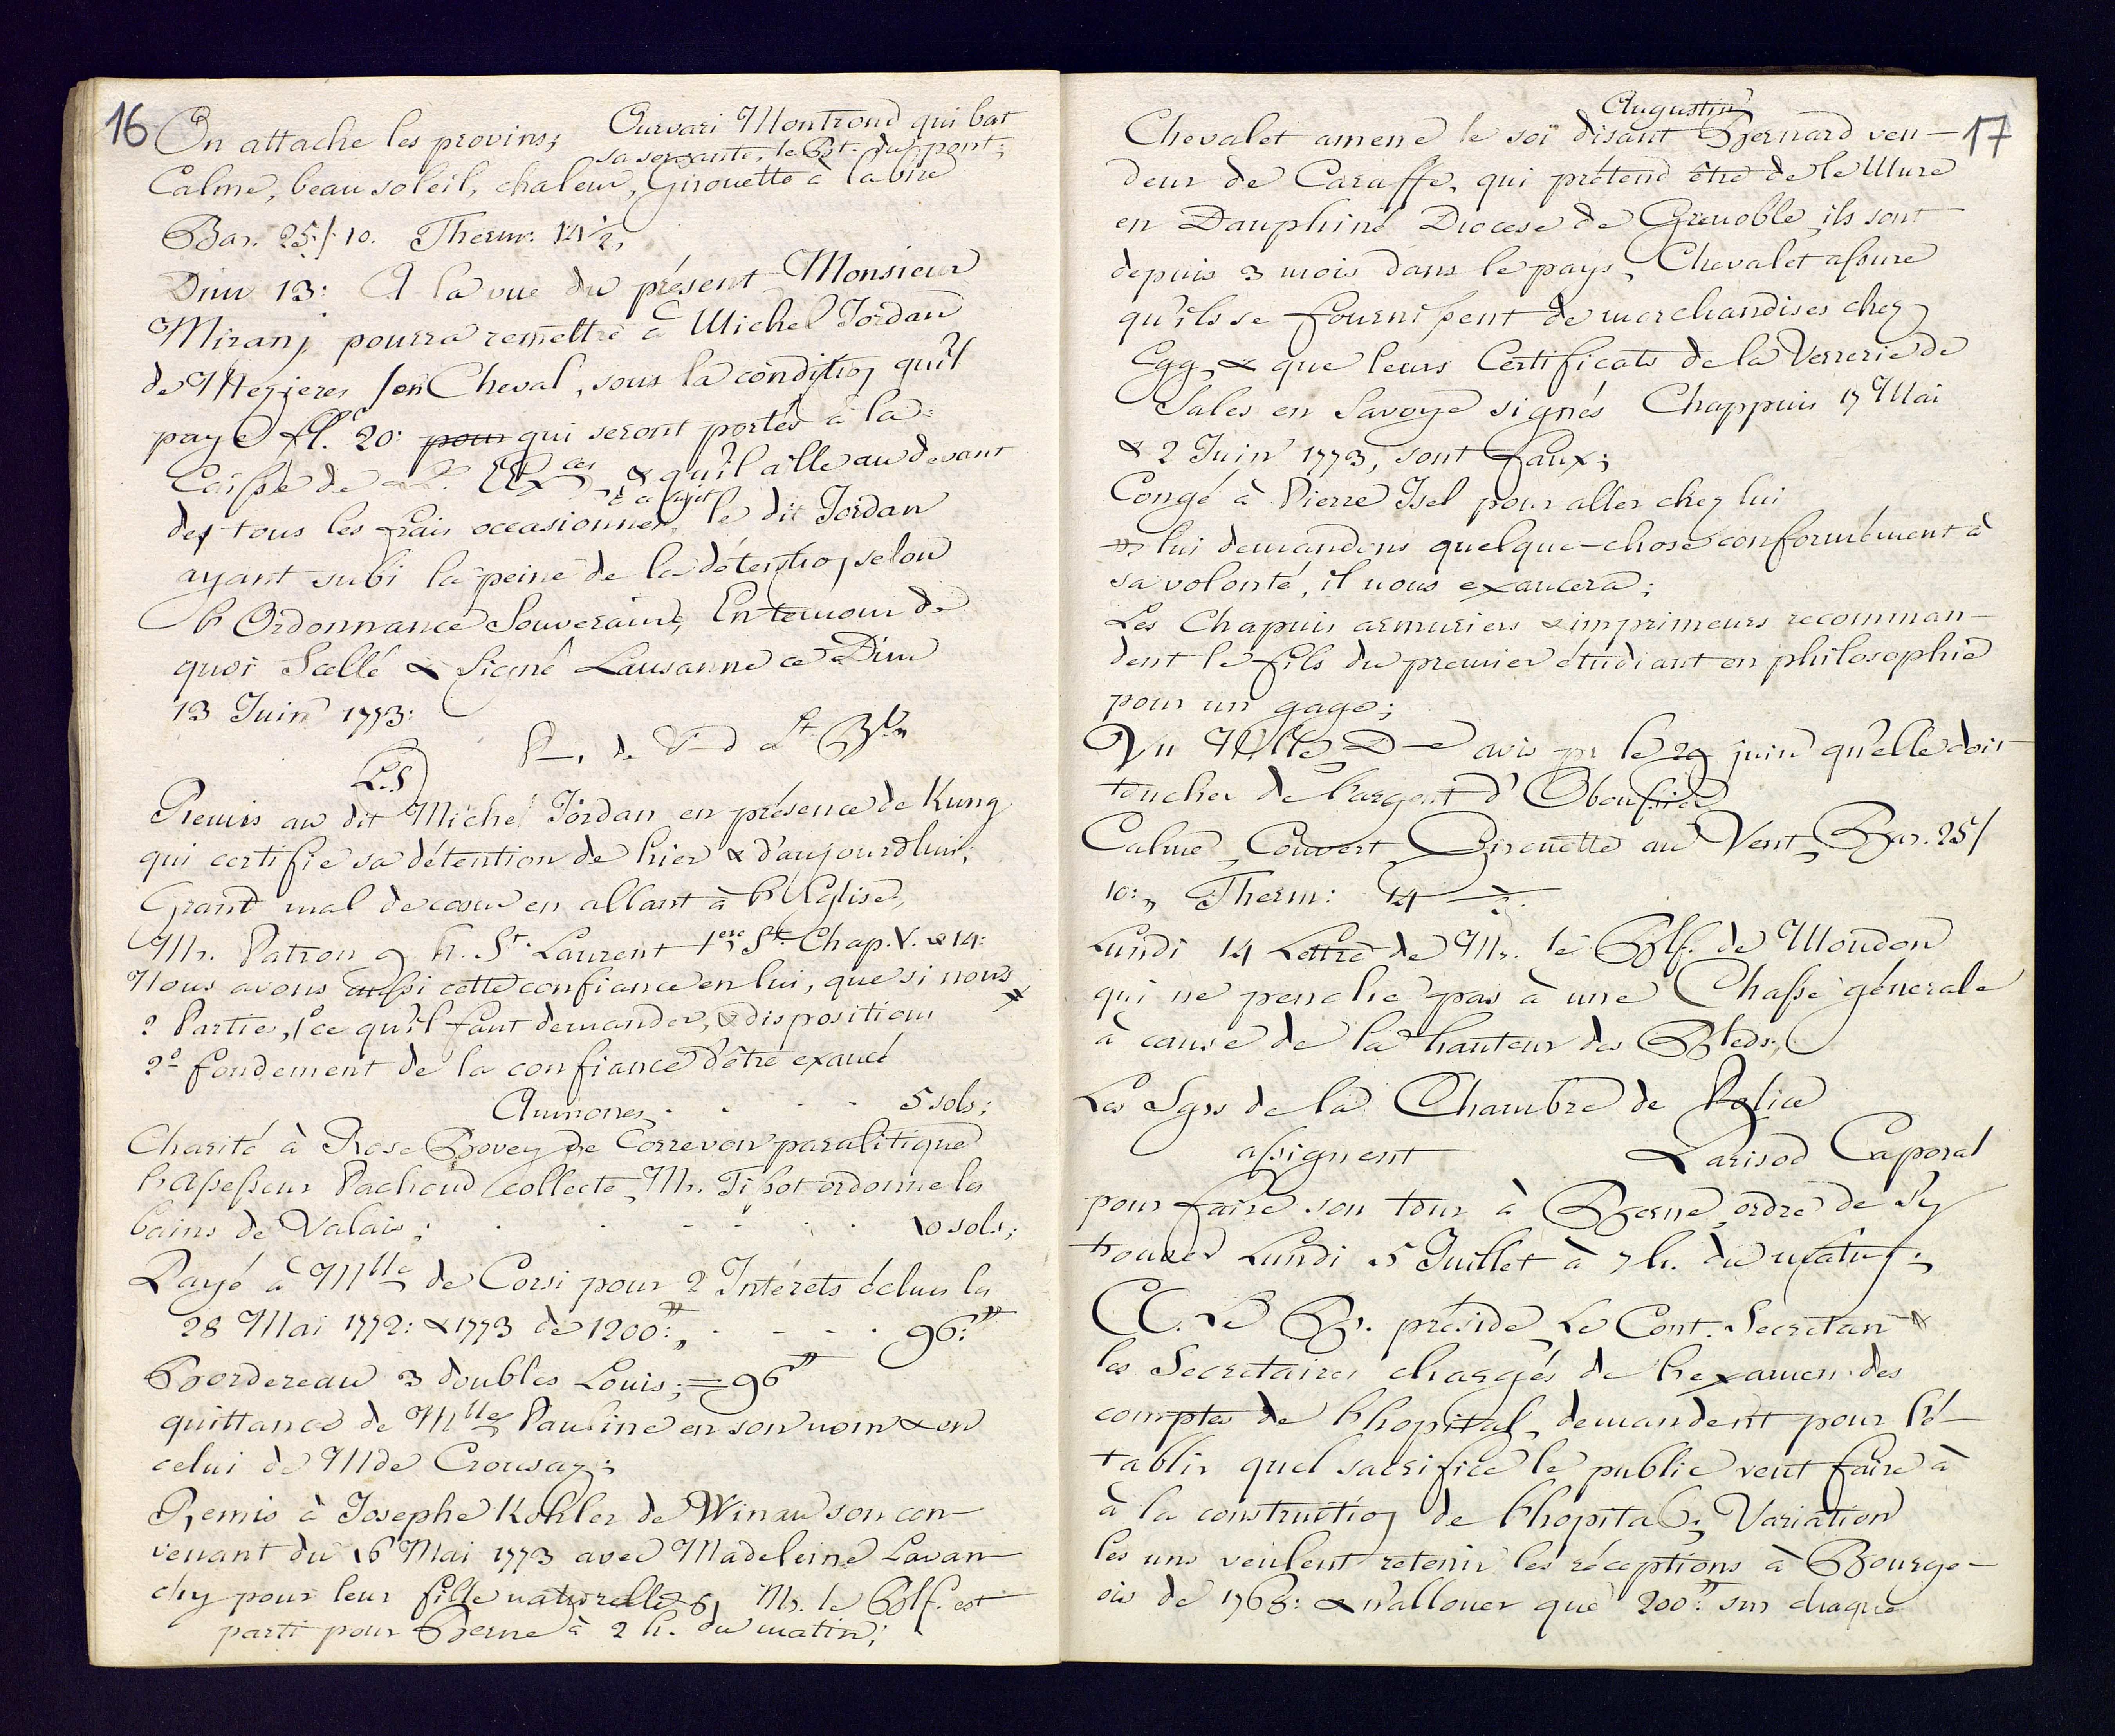 16
On attache les provins; Ourvari Montrond qui bat
sa servante, le Bt. du pont;
Calme, beau soleil, chaleur, Girouette à la bise
Bar. 25/10. Therm. 14 1/2,
Dim 13: A la vue du présent Monsieur
Miranj pourra remettre à Michel Jordan
de Mezieres son Cheval, sous la condition qu'il
paye fl. 20: pour qui seront portés à la
Caisse de LL. EEces & qu'il aille au devant
des tous les frais occasionnés à ce sujet, le dit Jordan
ayant subi la peine de la détention selon
l'Ordonnance Souveraine, En temoin de
quoi Scellé & Signé Lausanne ce Dim
13 Juin 1773:
P—. de V—d Lt Bl.
L.S
Remis au dit Michel Jordan en présence de Kung
qui certifie sa détention de hier & d'aujourdhui;
Grand mal de coeur en allant à l'Eglise,
Mr. Patron 9 h. St. Laurent 1ere St. Chap. V. & 14:
Nous avons aussi cette confiance en lui, que si nous
2 Parties, 1° ce qu'il faut demander, & dispositions
2° fondement de la confiance d'être exaucé
Aumones . . . . 5 sols;
Charité à Rose Bovey de Correvon paralitique
l'Assesseur Pachoud collecte, Mr. Tissot ordonne les
bains de Valais; . . . . . . 10 sols;
Payé à Mlle de Corsi pour 2 Intérets échus les
28 Mai 1772: & 1773 de 1200: . . . . 96:
Bordereau 3 doubles Louis; = 96
quittance de Mlle Pauline en son nom & en
celui de Mde Crousaz;
Remis à Josephe Kohler de Winau son con-
venant du 16 Mai 1773 avec Madeleine Lavan-
chy pour leur fille naturelle, Mr. le Blf. est
parti pour Berne à 2 h. du matin;
17
Augustin
Chevalet amene le soi disant Bernard ven-
deur de Caraffe, qui prétend être de le Mure
en Dauphiné Diocese de Grenoble, ils sont
depuis 3 mois dans le pays, Chevalet assure
qu'ils se fournissent de marchandises chez
Egg, & que leurs Certificats de la Verrerie de
Sales en Savoye signés Chappuis 17 Mai
& 2 Juin 1773, sont faux;
Congé à Pierre Isel pour aller chez lui
lui demandons quelque-chose conformément à
sa volonté, il nous exaucera;
Les Chapuis armuriers & imprimeurs recomman-
dent le fils du premier étudiant en philosophie
pour un gage;
Vu Mlle D—e avis pr le 29 juin qu'elle doit
toucher de l'argent d'Oboussier
Calme, Couvert, Girouette au Vent, Bar. 25/
10:, Therm: 14 —.
Lundi 14 Lettre de Mr. le Blf. de Moudon
qui ne penche pas à une Chasse générale
à cause de la hauteur des Bleds;
Les Sgrs de la Chambre de Police
assignent Larisod Caporal
pour faire son tour à Berne, ordre de s'y
trouver Lundi 5 Juillet à 7 h. du matin;
CC. Le B. préside, Le Cont. Secretan &
les Secretaires chargés de l'examen des
comptes de l'hopital, demandent pour l'é-
tablir quel sacrifice le public veut faire à
à la construction de l'hopital; Variation
les uns veulent retenir les réceptions à Bourge-
ois de 1768: & n'allouer que 200: sur chaque